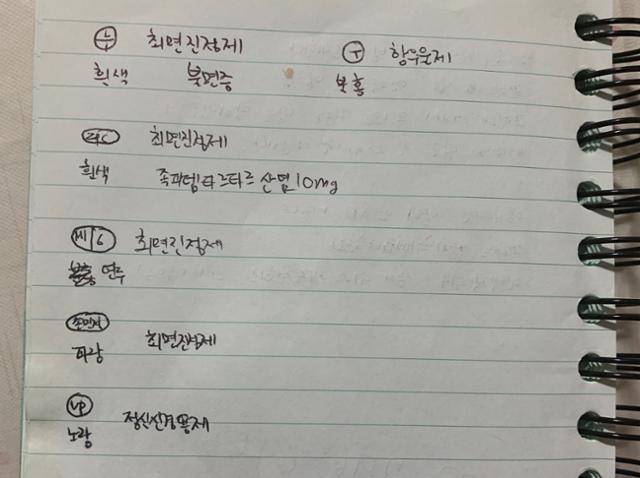 최면진정제 항우울제
흰색 불면증 분홍
최면진정제
흰색 졸피뎀타르타르산염 10mg
6 최면진정제
연주
파랑 최면진정제
VP 정신신경용제
노랑